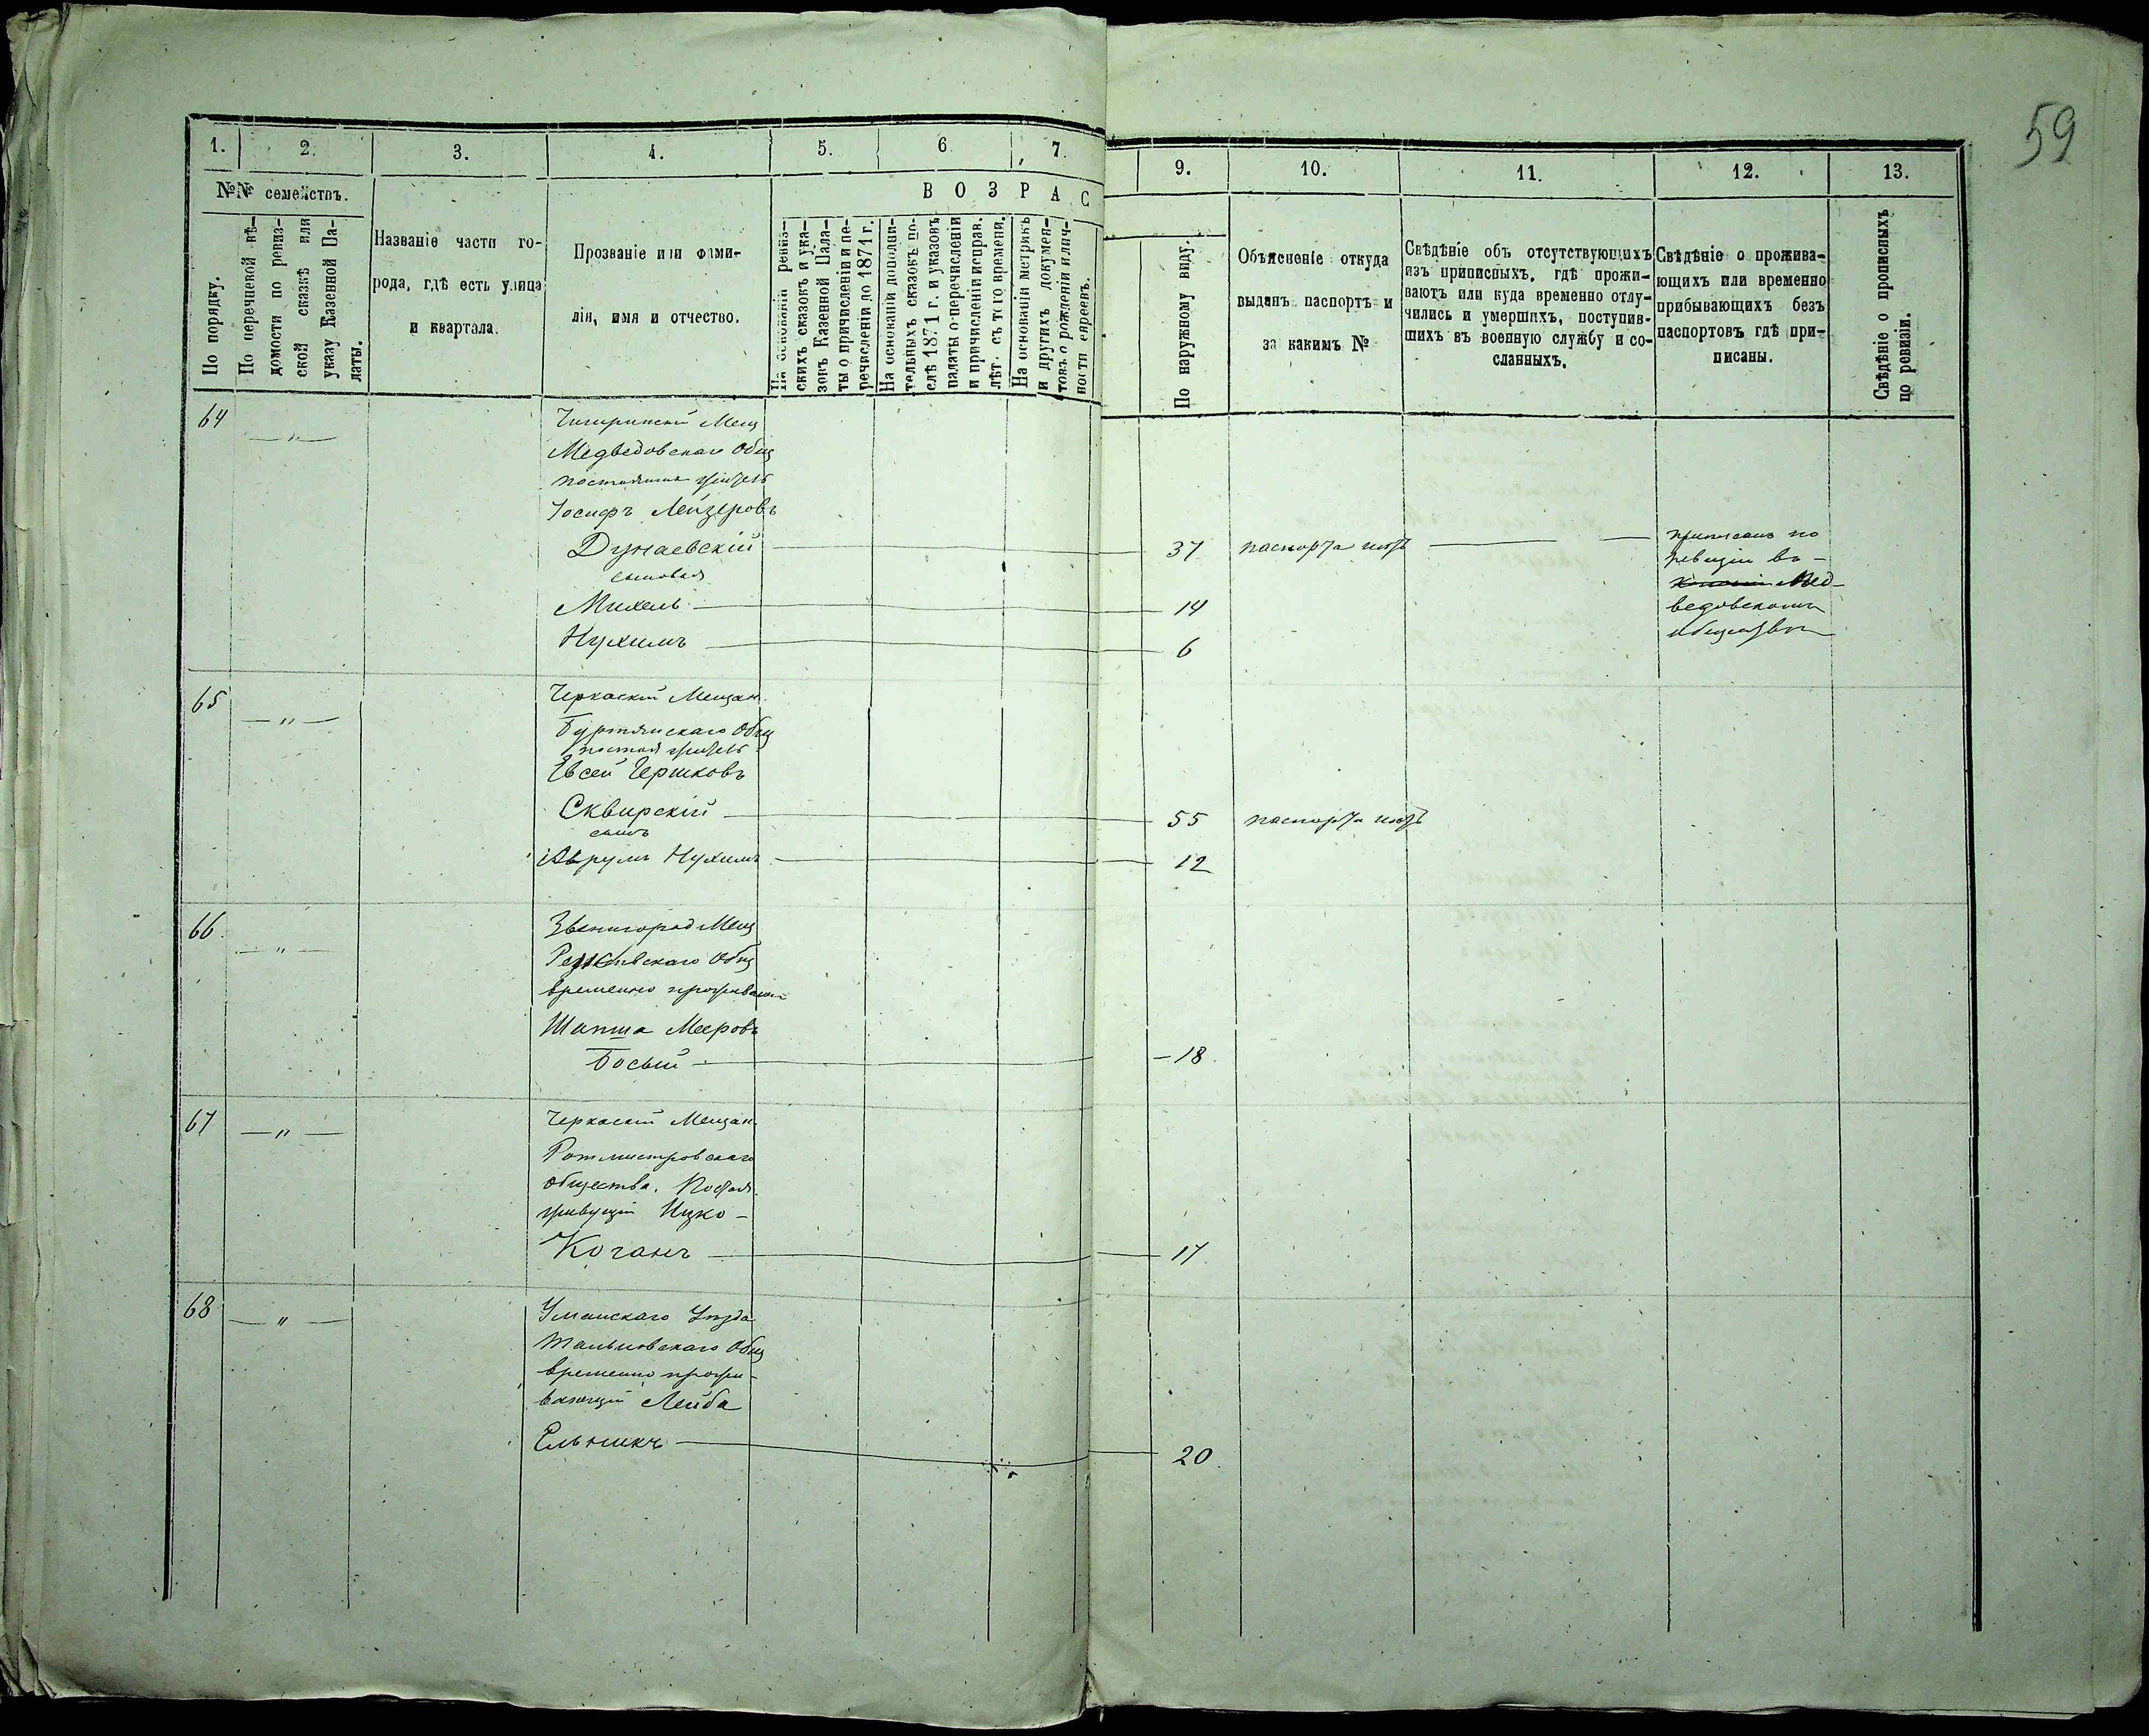 59
1. 2. 3. 4. 5. 6 7. 9. 10. 11. 12. 13.
№№ семействъ.
В О З Р А С
По порядку.
По перечневой вѣ-
домости по ревиз-
ской сказкѣ или
указу Казенной Па-
латы.
Названіе части го-
рода, гдѣ есть улица
и квартала.
Прозваніе или фами-
лія, имя и отчество.
На основаніи ревиз-
скихъ сказокъ и ука-
зовъ Казенной Пала-
ты о причисленіи и пе-
речисленіи до 1871 г.
На основаніи дополни-
тельныхъ сказокъ по-
слѣ 1871 г. и указовъ
палаты о перечисленіи
и причисленіи исправ.
лѣт. съ того времени.
На основаніи метрикъ
и другихъ докумен-
товъ о рожденіи и лич-
ности евреевъ.
По наружному виду.
Объясненіе откуда
выданъ паспортъ и
за какимъ №
Свѣдѣніе объ отсутствующихъ
изъ приписныхъ, гдѣ прожи-
ваютъ или куда временно отлу-
чились и умершихъ, поступив-
шихъ въ военную службу и со-
сланныхъ.
Свѣдѣніе о прожива-
ющихъ или временно
прибывающихъ безъ
паспортовъ гдѣ при-
писаны.
Свѣдѣніе о прописныхъ
по ревизіи.
64 — " —
Чигиринскій Мещ
Медведовскаго Общ
постоянно житель
Іосифъ Лейзеровъ
Дунаевскій 37 паспорта нѣтъ
сыновья
Михель 14
Нухимъ 6
приписанъ по
ревизіи въ
Мед-
ведовскомъ
обществѣ
65 — " —
Черкаскій Мещан.
Буртянскаго Общ
постоя житель
Евсей Гершковъ
Сквирскій 55 паспорта нѣтъ
сынъ
Аврумъ Нухимъ 12
66 — " —
Звенигород Мещ
Общ
временно проживающ
Шапша Мееровъ
Босый 18
67 — " —
Черкаскій Мещан.
Ротмистровскаго
общества. Постоя.
живущій Ицко —
Коганъ 17
68 — " —
Уманскаго Уѣзда
Тальновскаго Общ
временно прожи-
вающій Лейба
Ельникъ 20